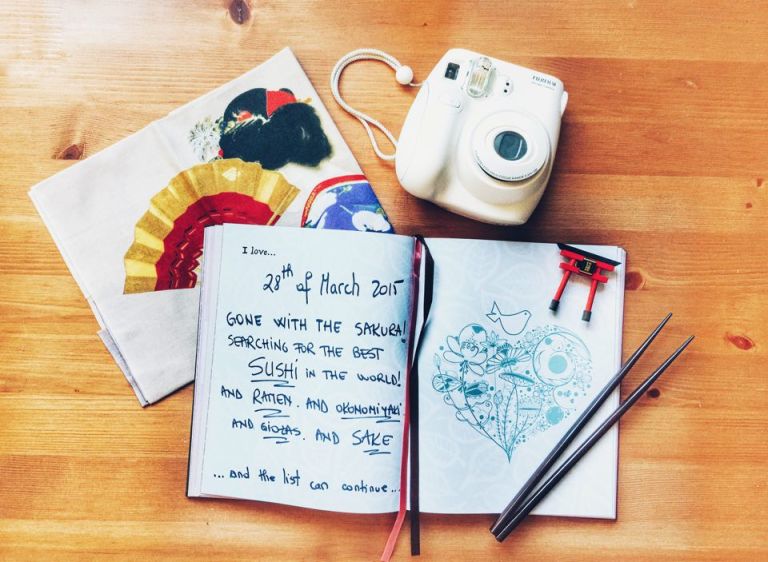 FUJIFILM
I love...
28th of March 2015
GONE WITH THE SAKURA!
SEARCHING FOR THE BEST
SUSHI IN THE WORLD!
AND RAMEN. AND OKONOMIYAKI
AND GIOZAS. AND SAKE
...and the list can continue...